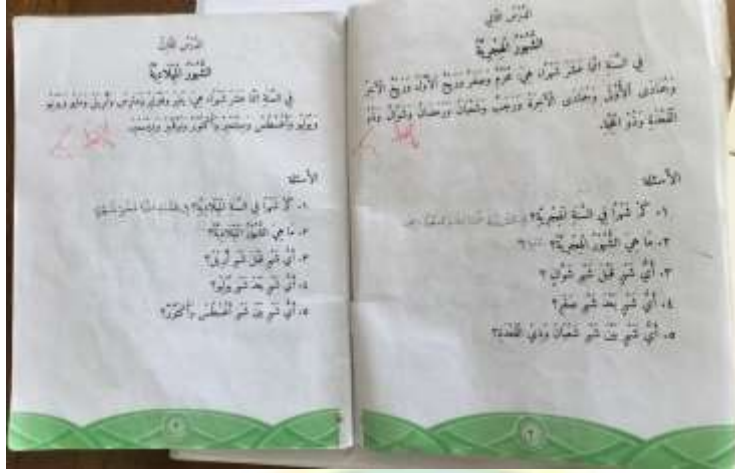 الدَّرْسُ الثَّانِي
الشُّهُورُ الْهِجْرِيَّةُ
فِي السَّنَةِ اثْنَا عَشَرَ شَهْرًا، هِيَ: مُحَرَّمٌ وَصَفَرٌ وَرَبِيعٌ الْأَوَّلُ وَرَبِيعٌ الْآخِرُ
وَجُمَادَى الْأُولَى وَجُمَادَى الْآخِرَةُ وَرَجَبٌ وَشَعْبَانُ وَرَمَضَانُ وَشَوَّالٌ وَذُو
الْقَعْدَةِ وَذُو الْحِجَّةِ.
الأسئلة
١. كَمْ شَهْرًا فِي السَّنَةِ الْهِجْرِيَّةِ؟
٢. مَا هِيَ الشُّهُورُ الْهِجْرِيَّةُ؟
٣. أَيُّ شَهْرٍ قَبْلَ شَهْرِ شَوَّالٍ؟
٤. أَيُّ شَهْرٍ بَعْدَ شَهْرِ صَفَرٍ؟
٥. أَيُّ شَهْرٍ بَيْنَ شَهْرِ شَعْبَانَ وَذِي الْقَعْدَةِ؟
٢
الدَّرْسُ الْأَوَّلُ
الشُّهُورُ الْمِيلَادِيَّةُ
فِي السَّنَةِ اثْنَا عَشَرَ شَهْرًا، هِيَ: يَنَايِرُ وَفِبْرَايِرُ وَمَارِسُ وَأَبْرِيلُ وَمَايُو وَيُونِيُو
وَيُولِيُو وَأَغُسْطُسُ وَسِبْتَمْبَرُ وَأُكْتُوبَرُ وَنُوفَمْبَرُ وَدِيسَمْبَرُ.
الأسئلة
١. كَمْ شَهْرًا فِي السَّنَةِ الْمِيلَادِيَّةِ؟
٢. مَا هِيَ الشُّهُورُ الْمِيلَادِيَّةُ؟
٣. أَيُّ شَهْرٍ قَبْلَ شَهْرِ أَبْرِيلَ؟
٤. أَيُّ شَهْرٍ بَعْدَ شَهْرِ يُولِيُو؟
٥. أَيُّ شَهْرٍ بَيْنَ شَهْرِ أَغُسْطُسَ وَأُكْتُوبَرَ؟